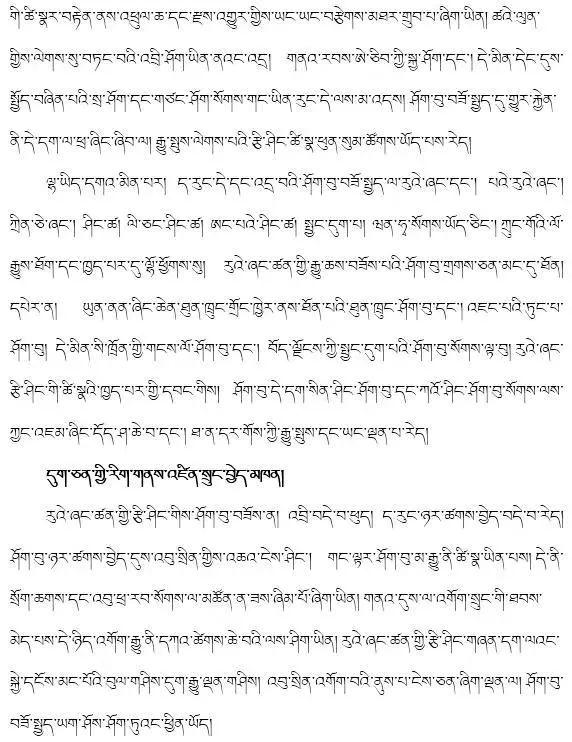 གི་ཚི་སྣར་བརྟེན་ནས་འཕྲུལ་ཆ་དང་རྫས་འགྱུར་གྱིས་ཡང་ཡང་བརྩེགས་མཐར་གྲུབ་པ་ཞིག་ཡིན། ཚའེ་ལུན་
གྱིས་ལེགས་སུ་བཏང་བའི་འབྲི་ཤོག་ཡིན་ནའང་འདྲ། གནའ་རབས་ཨེ་ཅིབ་ཀྱི་སྐྱ་ཤོག་དང་། དེ་མིན་དེང་དུས་
སྤྱོད་བཞིན་པའི་སྲ་ཤོག་དང་གཙང་ཤོག་སོགས་གང་ཡིན་རུང་དེ་ལས་མ་འདས། ཤོག་བུ་བཟོ་སྤྱད་དུ་གྱུར་རྐྱེན་
ནི་དེ་དག་ལ་ཕྲ་ཞིང་ཞིབ་ལ། རྒྱུ་སྤུས་ལེགས་པའི་རྩི་ཤིང་ཚི་སྣ་ཕུན་སུམ་ཚོགས་ཡོད་པས་རེད།
ལྷ་ཡིད་དགའ་མིན་པར། ད་རུང་དེ་དང་འདྲ་བའི་ཤོག་བུ་བཟོ་སྤྱད་ལ་རུའེ་ཞང་དང་། པའེ་རུའེ་ཞང་།
ཀྲིན་ཅེ་ཞང་། ཤིང་ཚ། ལི་ཅང་ཤིང་ཚ། ཨང་པའེ་ཤིང་ཚ། སྤྱང་དུག་པ། ཝན་ཧྭ་སོགས་ཡོད་ཅིང་། ཀྲུང་གོའི་ལོ་
རྒྱུས་ཐོག་དང་ཁྱད་པར་དུ་ལྷོ་ཕྱོགས་སུ། རུའེ་ཞང་ཚན་གྱི་རྒྱུ་ཆས་བཟོས་པའི་ཤོག་བུ་གྲགས་ཅན་མང་དུ་ཐོན།
དཔེར་ན། ཡུན་ནན་ཞིང་ཆེན་ཐུན་ཁྲུང་གྲོང་ཁྱེར་ནས་ཐོན་པའི་ཐུན་ཁྲུང་ཤོག་བུ་དང་། འཇང་པའི་ཏུང་པ་
ཤོག་བུ། དེ་མིན་སི་ཁྲོན་གྱི་གངས་ལོ་ཤོག་བུ་དང་། བོད་ལྗོངས་ཀྱི་སྤྱང་དུག་པའི་ཤོག་བུ་སོགས་ལྟ་བུ། རུའེ་ཞང་
རྩི་ཤིང་གི་ཚི་སྣའི་ཁྱད་པར་གྱི་དབང་གིས། ཤོག་བུ་དེ་དག་སིན་ཤིང་ཤོག་བུ་དང་ཀའོ་ཤིང་ཤོག་བུ་སོགས་ལས་
ཀྱང་འཇམ་ཞིང་དོད་ཤ་ཆེ་བ་དང་། ཐ་ན་དར་གོས་ཀྱི་རྒྱུ་སྤུས་དང་ཡང་ལྡན་པ་རེད།
དུག་ཅན་གྱི་རིག་གནས་འཛིན་སྲུང་བྱེད་མཁན།
རུའེ་ཞང་ཚན་གྱི་རྩི་ཤིང་གིས་ཤོག་བུ་བཟོས་ན། འབྲི་བདེ་བ་ཕུད། ད་རུང་ཉར་ཚགས་བྱེད་བདེ་བ་རེད།
ཤོག་བུ་ཉར་ཚགས་བྱེད་དུས་འབུ་སྲིན་གྱིས་འཆའ་ངེས་ཤིང་། གང་ལྟར་ཤོག་བུ་མ་རྒྱུ་ནི་ཚི་སྣ་ཡིན་པས། དེ་ནི་
སྲོག་ཆགས་དང་འབུ་ཕྲ་རབ་སོགས་ལ་མཚོན་ན་ཟས་ཞིམ་པོ་ཞིག་ཡིན། གནའ་དུས་ལ་འགོག་སྲུང་གི་ཐབས་
མེད་པས་དེ་ཉིད་འགོག་རྒྱུ་ནི་དཀའ་ཚེགས་ཆེ་བའི་ལས་ཤིག་ཡིན། རུའེ་ཞང་ཚན་གྱི་རྩི་ཤིང་གཞན་དག་ལའང་
སྐྱེ་དངོས་མང་པོའི་བུལ་གཤིས་དུག་རྒྱུ་ལྡན་གཤིས། འབུ་སྲིན་འགོག་བའི་ནུས་པ་ངེས་ཅན་ཞིག་ལྡན་ལ། ཤོག་བུ་
བཟོ་སྤྱད་ཡག་ཤོས་ཤོག་ཏུའང་ཕྱིན་ཡོད།